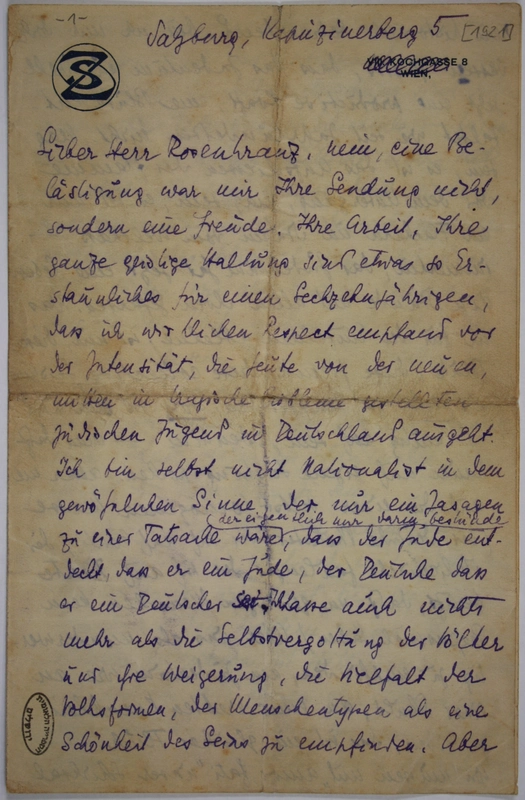 -1-
Salzburg, Kapuzinerberg 5 [1921]
SZ
VIII. KOCHGASSE 8
WIEN,
Lieber Herr Rosenkranz, nein, eine Be-
lästigung war mir Ihre Sendung nicht,
sondern eine Freude. Ihre Arbeit, Ihre
ganze geistige Haltung sind etwas so Er-
staunliches für einen Sechzehnjährigen,
dass ich wirklichen Respect empfand vor
der Intensität, die heute von der neuen,
mitten in tragische Probleme gestellten
jüdischen Jugend in Deutschland ausgeht.
Ich bin selbst nicht Nationalist in dem
gewöhnlichen Sinne, der nur ein Jasagen
der eigentlich nur darin bestünde
zu einer Tatsache wäre, dass der Jude ent-
deckt, dass er ein Jude, der Deutsche dass
er ein Deutscher sei. Ich hasse auch nichts
mehr als die Selbstvergottung der Völker
und ihre Weigerung, die Vielfalt der
Volksformen, der Menschentypen als eine
Schönheit des Seins zu empfinden. Aber